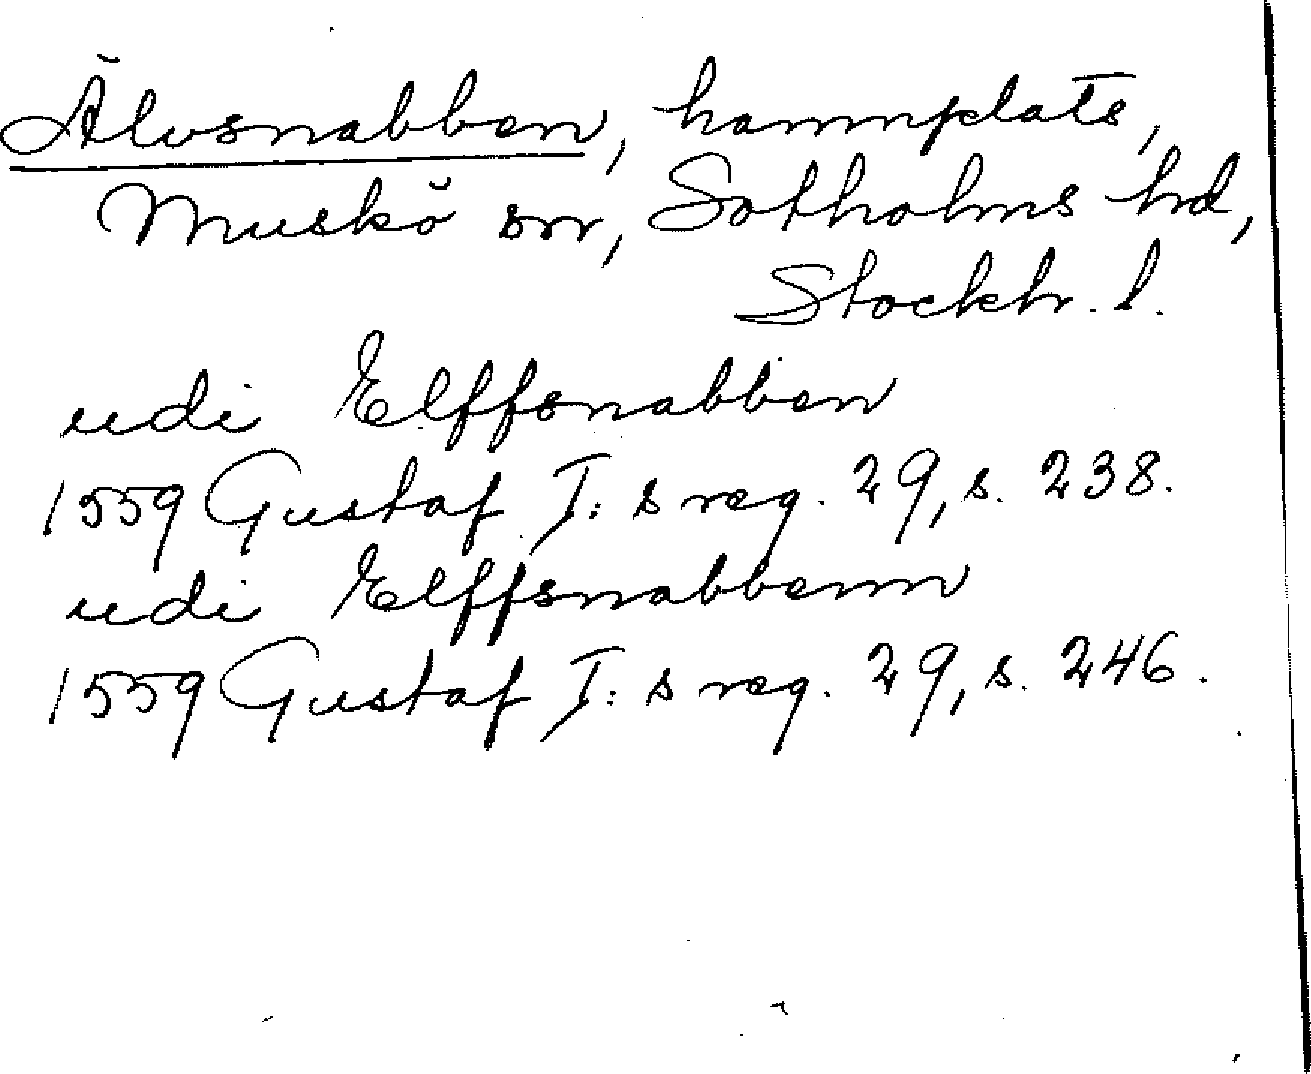 Älvsnabben, hamnplats,
Muskö sn, Sotholms hd,
Stockh. l.
udi Elffsnabben
1559 Gustaf I: s reg. 29, s. 238.
udi Elffsnabbenn
1559 Gustaf I: s reg. 29, s. 246.